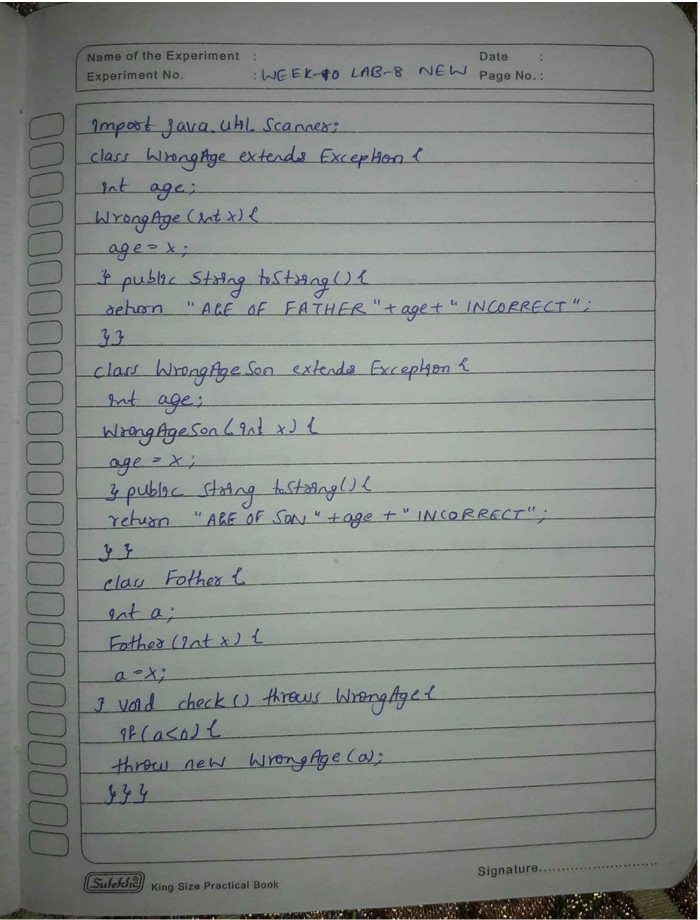 Name of the Experiment :
Date :
Experiment No. : WEEK-10 LAB-8 NEW
Page No. :
import java.util.Scanner;
class WrongAge extends Exception {
int age;
WrongAge (int x) {
age = x;
} public String toString() {
return "AGE OF FATHER "+age+" INCORRECT";
}}
class WrongAgeSon extends Exception {
int age;
WrongAgeSon (int x) {
age = x;
} public String toString() {
return "AGE OF SON "+age +" INCORRECT";
} }
class Father {
int a;
Father (int x) {
a = x;
} void check () throws WrongAge {
if (a<0) {
throw new WrongAge (a);
}}}
Signature..............................
Sulekha King Size Practical Book